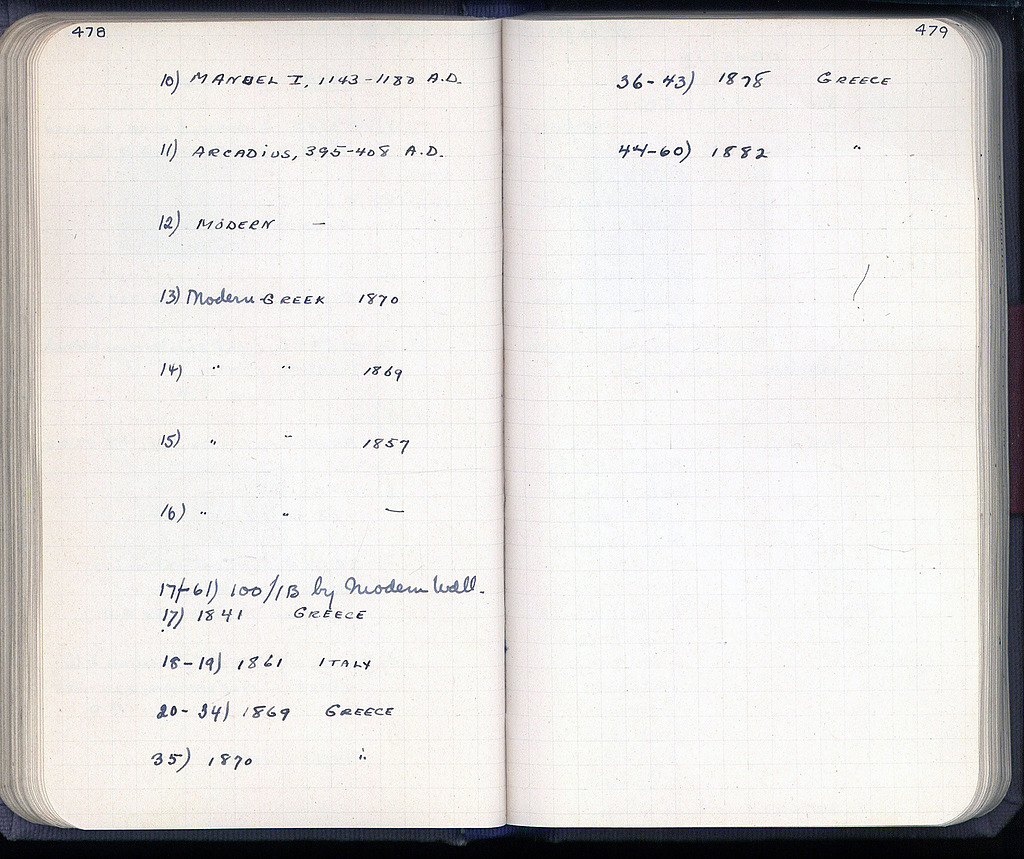 478
10) MANUEL I, 1143-1180 A.D.
11) ARCADIUS, 395-408 A.D.
12) MODERN —
13) Modern GREEK 1870
14) " " 1869
15) " " 1857
16) " " —
17-61) 100/1B by Modern Wall.
17) 1841 GREECE
18-19) 1861 ITALY
20-34) 1869 GREECE
35) 1870 "
479
36-43) 1878 GREECE
44-60) 1882 "